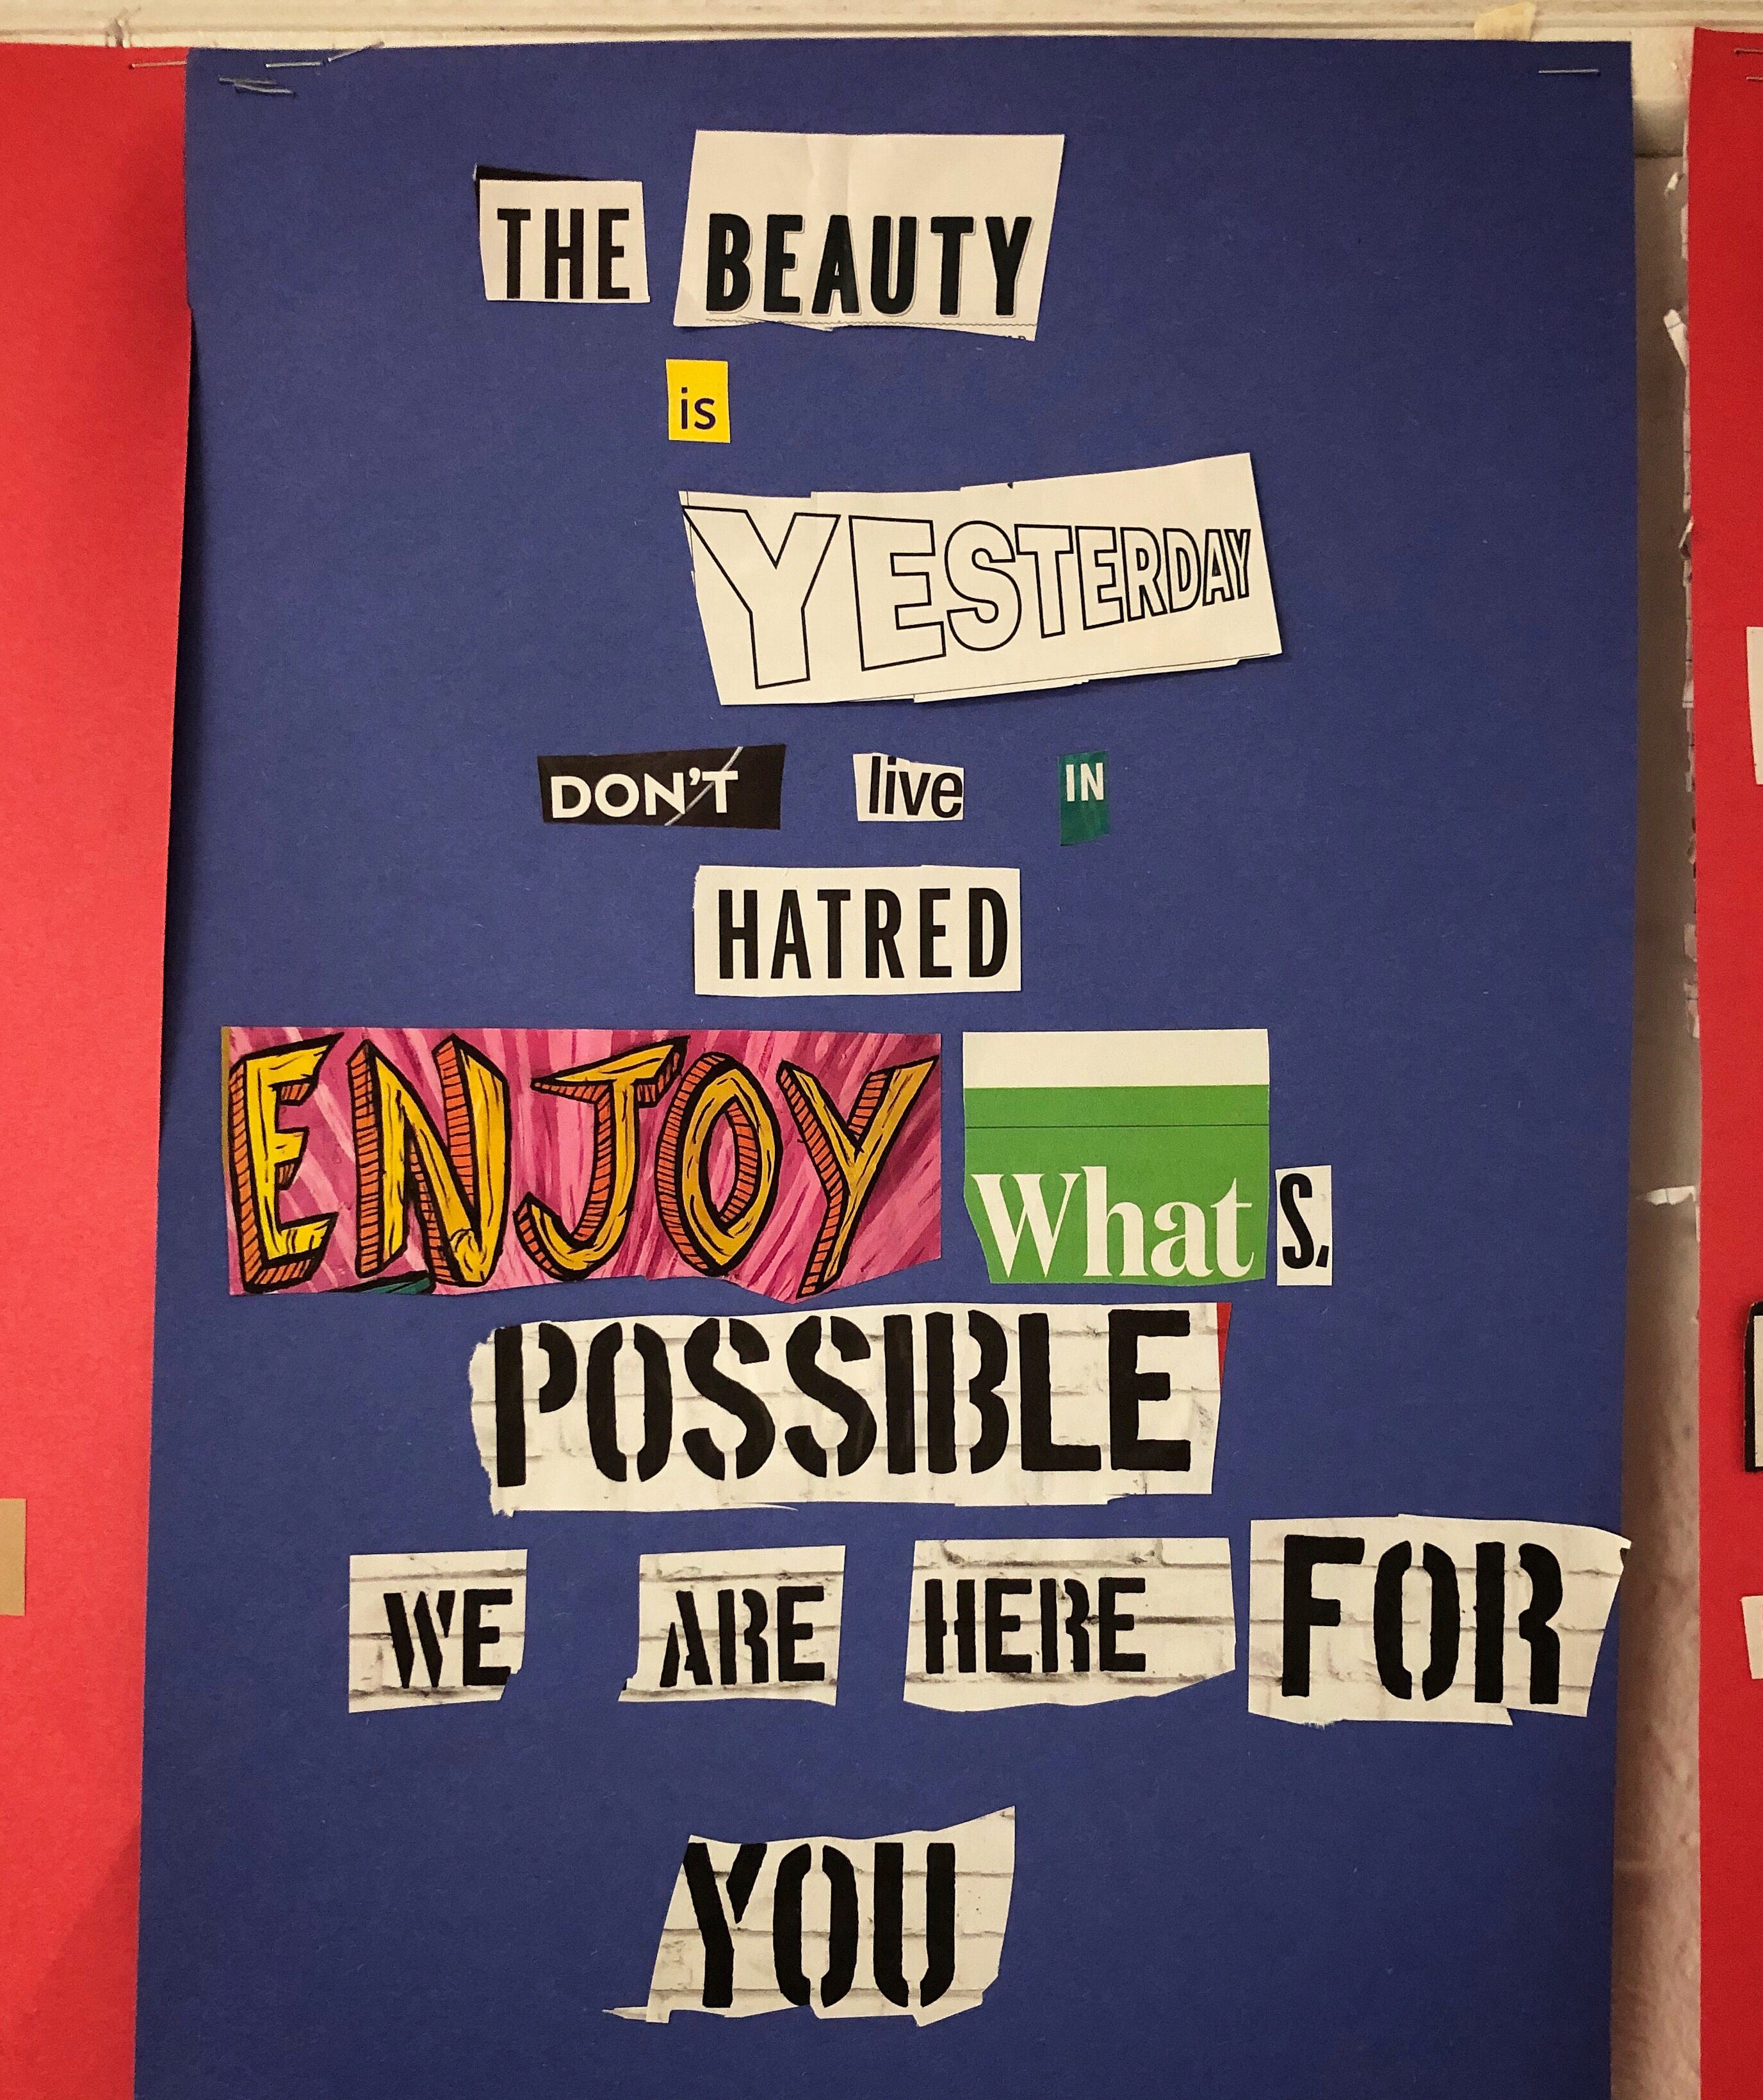 THE BEAUTY
is
YESTERDAY
DON'T live IN
HATRED
ENJOY What S.
POSSIBLE
WE ARE HERE FOR
YOU